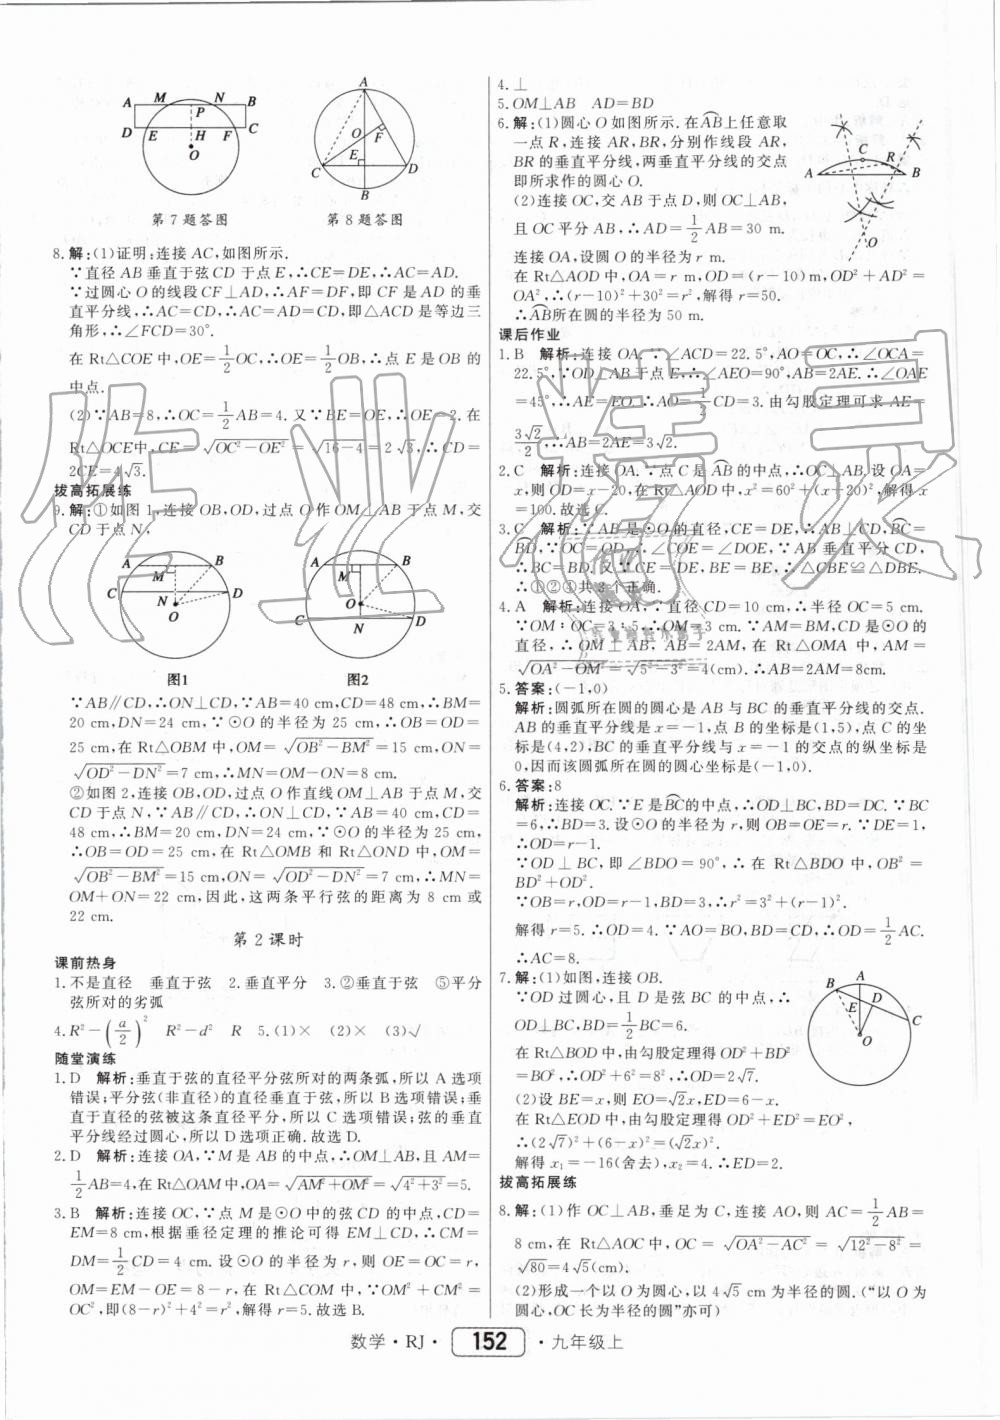 A M N B
P
D E H F C
O
第7题答图
A
O F
E
C D
B
第8题答图
8.解:(1)证明:连接AC,如图所示.
∵直径AB垂直于弦CD于点E,∴CE=DE,∴AC=AD.
∵过圆心O的线段CF⊥AD,∴AF=DF,即CF是AD的垂
直平分线,∴AC=CD,∴AC=AD=CD,即△ACD是等边三
角形,∴∠FCD=30°.
在Rt△COE中,OE=1/2OC,∴OE=1/2OB,∴点E是OB的
中点.
(2)∵AB=8,∴OC=1/2AB=4.又∵BE=OE,∴OE=2.在
Rt△OCE中,CE=√(OC²-OE²)=√(16-4)=2√3,∴CD=
2CE=4√3.
拔高拓展练
9.解:①如图1,连接OB,OD,过点O作OM⊥AB于点M,交
CD于点N,
A B
M
C D
N
O
图1
A B
M
O
C D
N
图2
∵AB∥CD,∴ON⊥CD,∵AB=40 cm,CD=48 cm,∴BM=
20 cm,DN=24 cm,∵⊙O的半径为25 cm,∴OB=OD=
25 cm,在Rt△OBM中,OM=√(OB²-BM²)=15 cm,ON=
√(OD²-DN²)=7 cm,∴MN=OM-ON=8 cm.
②如图2,连接OB,OD,过点O作直线OM⊥AB于点M,交
CD于点N,∵AB∥CD,∴ON⊥CD,∵AB=40 cm,CD=
48 cm,∴BM=20 cm,DN=24 cm,∵⊙O的半径为25 cm,
∴OB=OD=25 cm,在Rt△OMB和Rt△OND中,OM=
√(OB²-BM²)=15 cm,ON=√(OD²-DN²)=7 cm,∴MN=
OM+ON=22 cm,因此,这两条平行弦的距离为8 cm或
22 cm.
第2课时
课前热身
1.不是直径 垂直于弦 2.垂直平分 3.②垂直于弦 ⑤平分
弦所对的劣弧
4.R²-(a/2)² R²-d² R 5.(1)× (2)× (3)√
随堂演练
1.D 解析:垂直于弦的直径平分弦所对的两条弧,所以A选项
错误;平分弦(非直径)的直径垂直于弦,所以B选项错误;垂
直于直径的弦被这条直径平分,所以C选项错误;弦的垂直
平分线经过圆心,所以D选项正确.故选D.
2.D 解析:连接OA,∵M是AB的中点,∴OM⊥AB,且AM=
1/2AB=4,在Rt△OAM中,OA=√(AM²+OM²)=√(4²+3²)=5.
3.B 解析:连接OC,∵点M是⊙O中的弦CD的中点,CD=
EM=8 cm,根据垂径定理的推论可得EM⊥CD,∴CM=
DM=1/2CD=4 cm.设⊙O的半径为r,则OE=OC=r,
OM=EM-OE=8-r,在Rt△OMC中,∵OM²+CM²=
OC²,即(8-r)²+4²=r²,解得r=5.故选B.
4.⊥
5.OM⊥AB AD=BD
6.解:(1)圆心O如图所示.在AB上任意取
一点R,连接AR,BR,分别作线段AR,
BR的垂直平分线,两垂直平分线的交点
即所求作的圆心O.
(2)连接OC,交AB于点D,则OC⊥AB,
且OC平分AB,∴AD=1/2AB=30 m.
连接OA,设圆O的半径为r m.
C R
A B
O
在Rt△AOD中,OA=r m,OD=(r-10)m,OD²+AD²=
OA²,∴(r-10)²+30²=r²,解得r=50.
∴AB所在圆的半径为50 m.
课后作业
1.B 解析:连接OA.∵∠ACD=22.5°,AO=OC,∴∠OCA=
22.5°,∵OD⊥AB于点E,∴∠AEO=90°,AB=2AE.∴∠OAE
=45°,∴AE=EO.∴AO=1/2CD=3.由勾股定理可求AE=
3√2/2,∴AB=2AE=3√2.
2.C 解析:连接OA.∵点C是AB的中点,∴OC⊥AB.设OA=
x,则OD=x-20,在Rt△AOD中,x²=60²+(x-20)²,解得x
=100.故选C.
3.C 解析:∵AB是⊙O的直径,CE=DE,∴AB⊥CD,BC=
BD,∵OC=OD,∴∠COE=∠DOE,∵AB垂直平分CD,
∴BC=BD.又∵CE=DE,BE=BE,∴△CBE≌△DBE.
∴①②③④共3个正确.
4.A 解析:连接OA,∵直径CD=10 cm,∴半径OC=5 cm.
∵OM∶OC=3∶5,∴OM=3 cm.∵AB⊥OM,CD是⊙O的
直径,∴OM⊥AB,AB=2AM,在Rt△OAM中,AM=
√(OA²-OM²)=√(5²-3²)=4(cm).∴AB=2AM=8cm.
5.答案:(-1,0)
解析:圆弧所在的圆的圆心是AB与BC的垂直平分线的交点.
AB的垂直平分线是x=-1,点B的坐标是(1,5),点C的坐
标是(4,2),BC的垂直平分线与x=-1的交点的纵坐标是
0,因而该圆弧所在圆的圆心坐标是(-1,0).
6.答案:8
解析:连接OC.∵E是BC的中点,∴OD⊥BC,BD=DC.∵BC
=6,∴BD=3.设⊙O的半径为r,则OB=OE=r.∵DE=1,
∴OD=r-1.
∵OD⊥BC,即∠BDO=90°,∴在Rt△BDO中,OB²=
BD²+OD².
∵OB=r,OD=r-1,BD=3,∴r²=3²+(r-1)².
解得r=5.∴OD=4.∵AO=BO,BD=CD,∴OD=1/2AC.
∴AC=8.
7.解:(1)如图,连接OB.
∵OD过圆心,且D是弦BC的中点,∴
OD⊥BC,BD=1/2BC=6.
在Rt△BOD中,由勾股定理得OD²+BD²
=BO²,∴OD²+6²=8²,∴OD=2√7.
(2)设BE=x,则EO=√2x,ED=6-x.
在Rt△EOD中,由勾股定理得OD²+ED²=EO²,
∴(2√7)²+(6-x)²=(√2x)².
解得x₁=-16(舍去),x₂=4.∴ED=2.
A
B D
E C
O
拔高拓展练
8.解:(1)作OC⊥AB,垂足为C,连接AO,则AC=1/2AB=
8 cm,在Rt△AOC中,OC=√(OA²-AC²)=√(12²-8²)=
√80=4√5(cm).
(2)形成一个以O为圆心,以4√5 cm为半径的圆.(“以O为
圆心,OC长为半径的圆”亦可)
数学·RJ· 152 ·九年级上
作业精灵